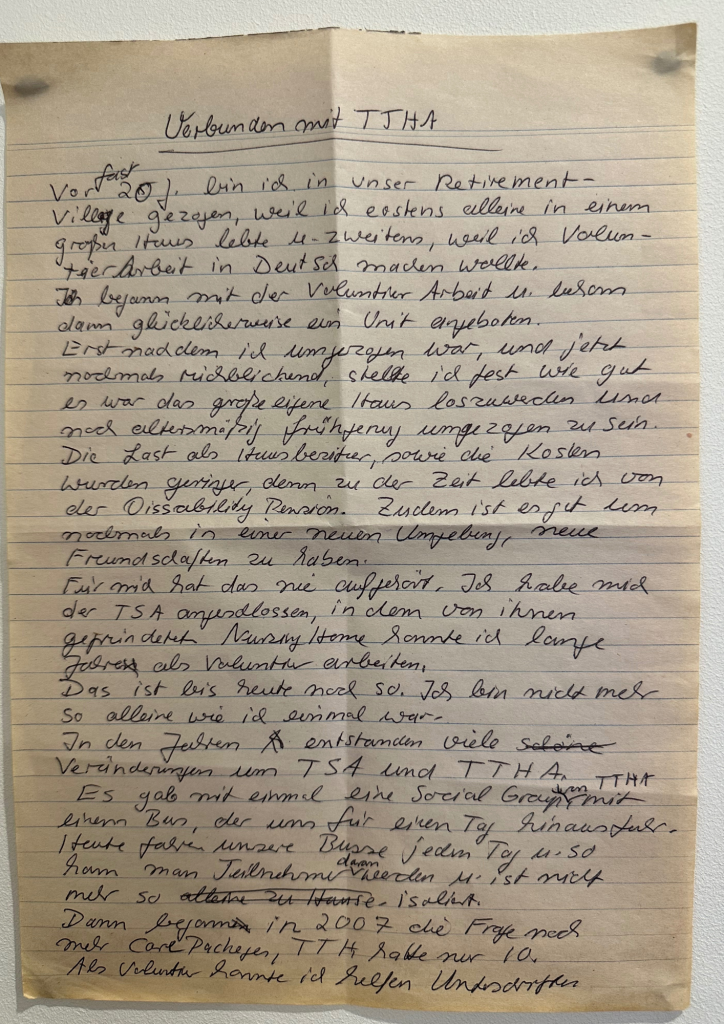 Verbunden mit TTHA
Vor fast 20 J. bin ich in unser Retirement-
Village gezogen, weil ich erstens alleine in einem
großen Haus lebte u. zweitens, weil ich Volun-
tier Arbeit in Deutsch machen wollte.
Ich begann mit der Voluntier Arbeit u. bekam
dann glücklicherweise ein Unit angeboten.
Erst nachdem ich umgezogen war, und jetzt
nochmals rückblickend, stellte ich fest wie gut
es war das große eigene Haus loszuwerden und
noch altersmäßig frühzeitig umgezogen zu sein.
Die Last als Hausbesitzer, sowie die Kosten
wurden geringer, denn zu der Zeit lebte ich von
der Dissability Pension. Zudem ist es gut um
nochmals in einer neuen Umgebung, neue
Freundschaften zu haben.
Für mich hat das nie aufgehört. Ich habe mich
der TSA angeschlossen, in dem von ihnen
gegründeten Nursing Home konnte ich lange
Jahre als Voluntier arbeiten.
Das ist bis heute noch so. Ich bin nicht mehr
so alleine wie ich einmal war.
In den Jahren entstanden viele schöne
Veränderungen um TSA und TTHA.
Es gab mit einmal eine Social Group von TTHA mit
einem Bus, der uns für einen Tag hinausfuhr.
Heute fahren unsere Busse jeden Tag u. so
kann man Teilnehmer davon werden u. ist nicht
mehr so alleine zu Hause. isoliert.
Dann begann in 2007 die Frage nach
mehr Care Packages, TTH hatte nur 10.
Als Voluntier konnte ich helfen Unterschriften